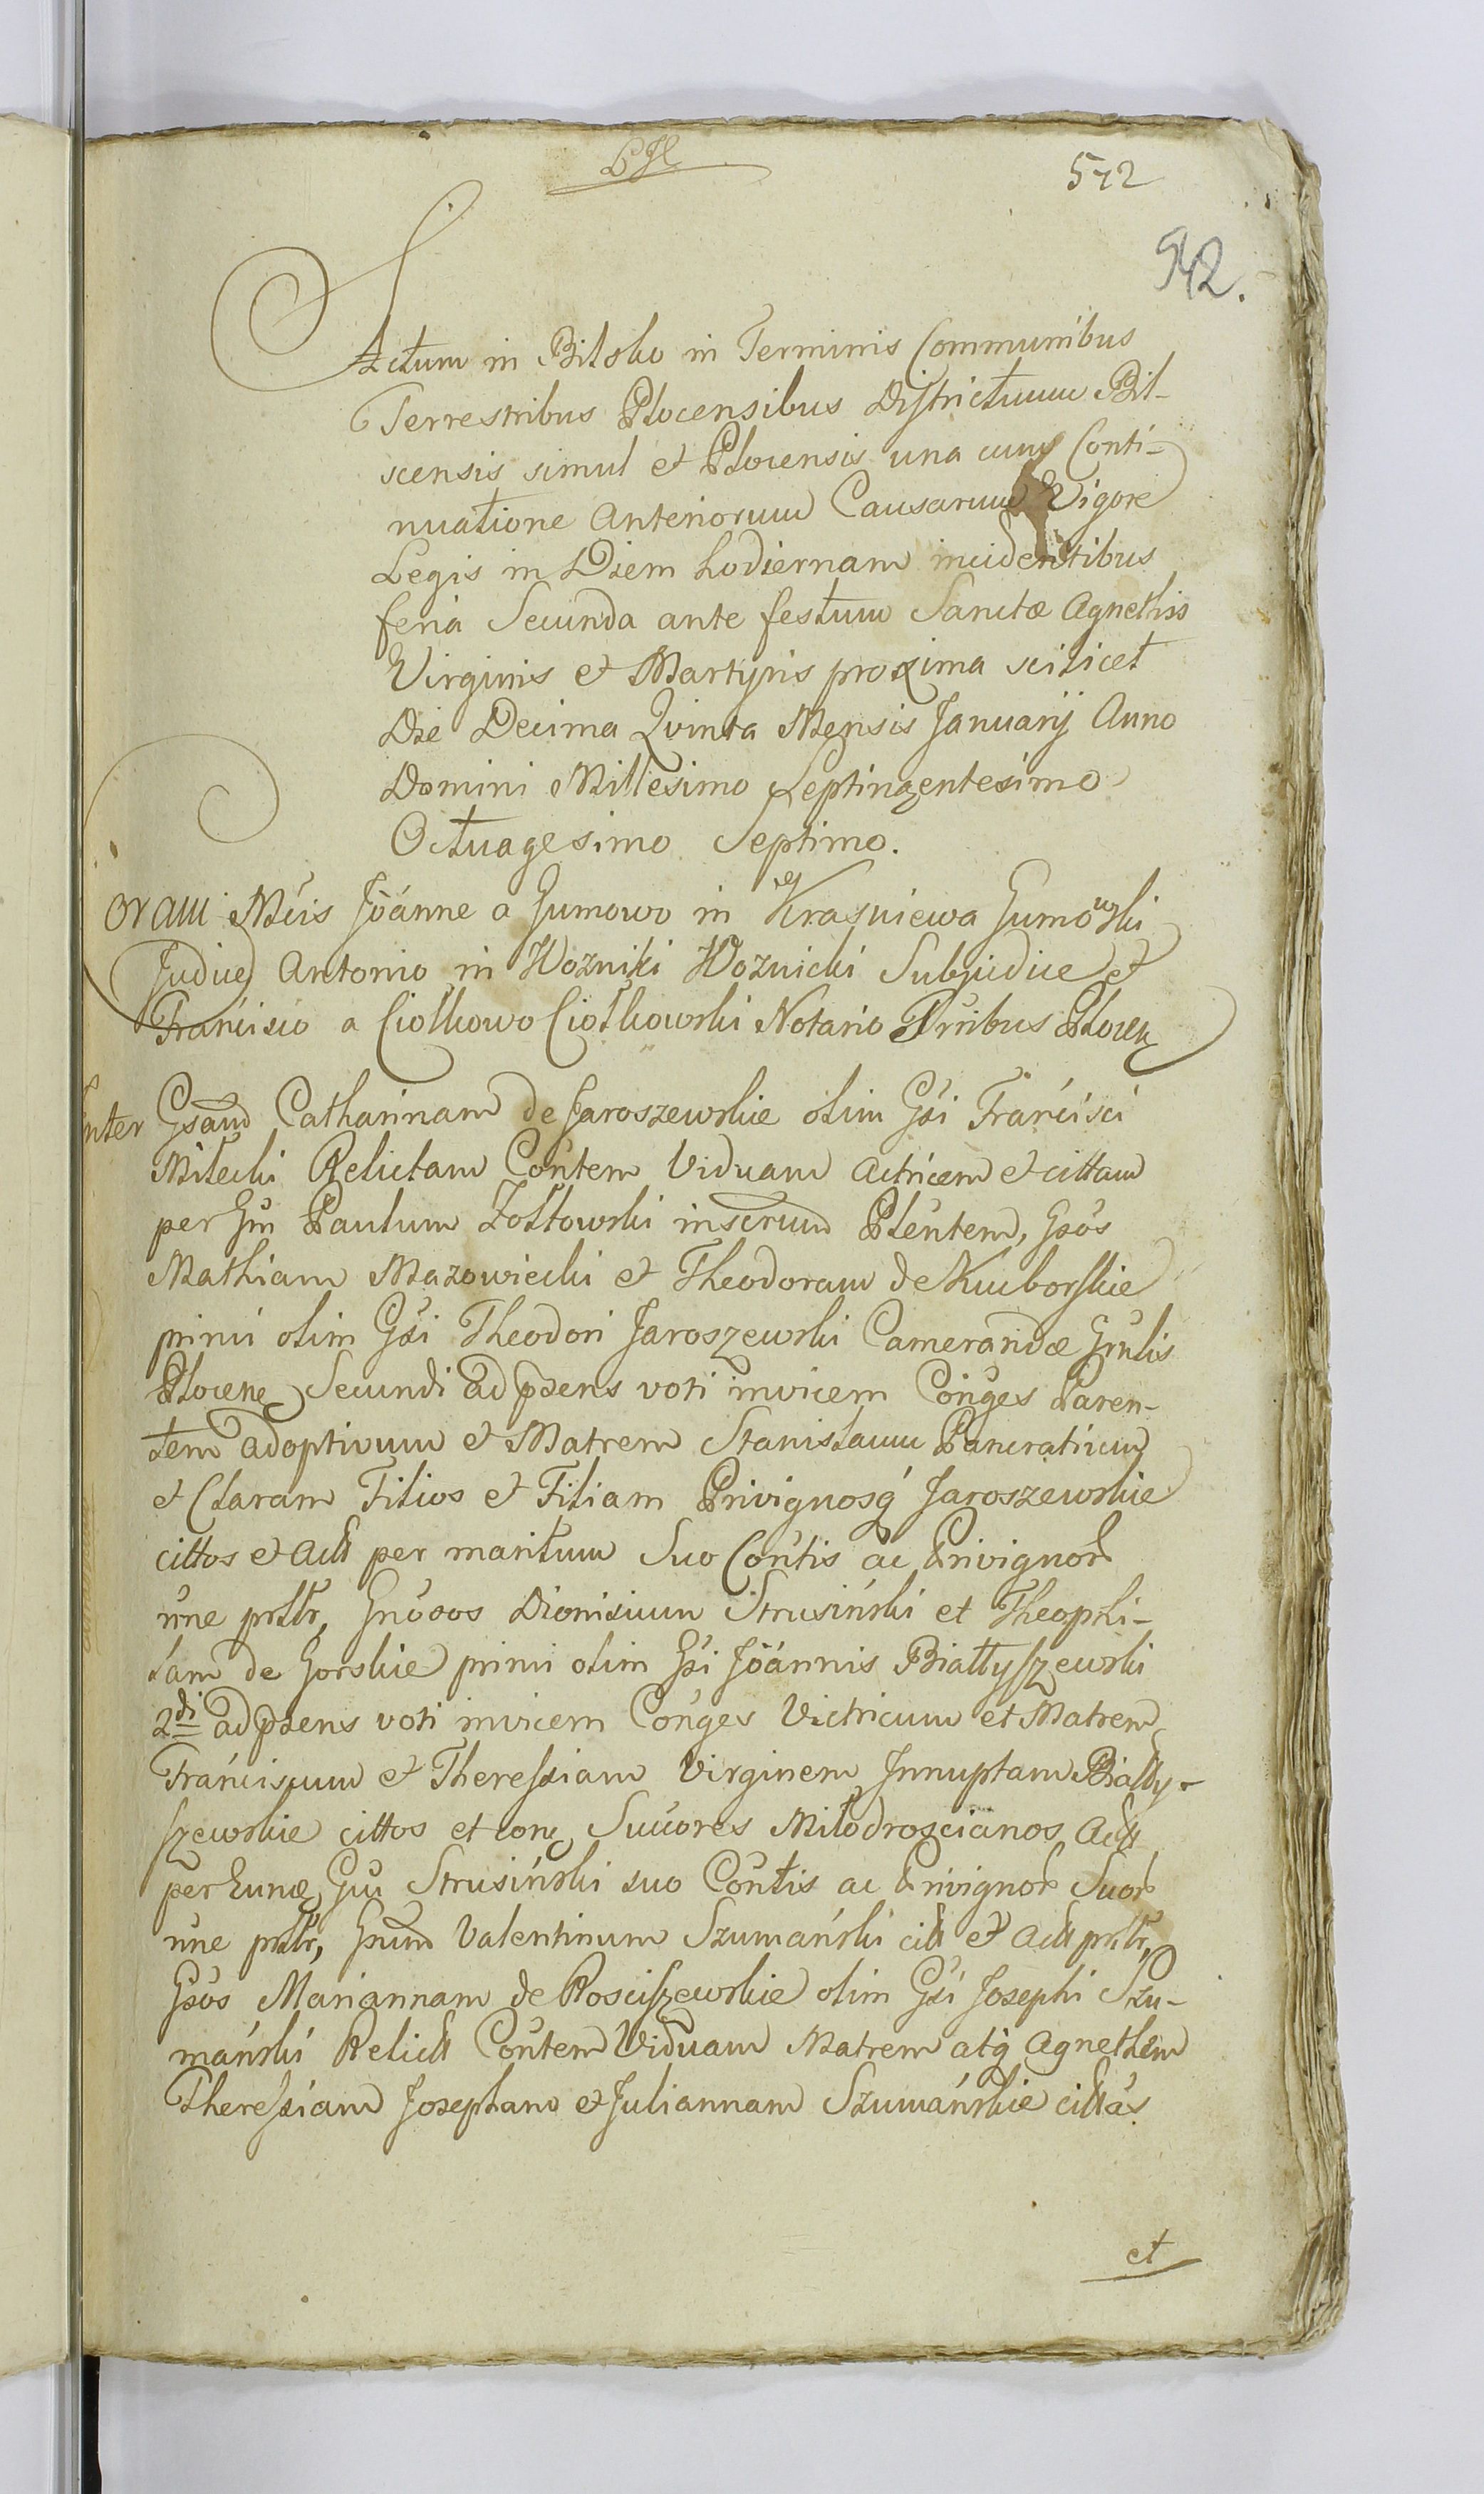 572
942.
Actum in Bilsko in Terminis Communibus
Terrestribus Plocensibus Districtuum Bil-
scensis simul et Plocensis una cum Conti-
nuatione Anteriorum Causarum Vigore
Legis in Diem hodiernam incidentibus
feria Secunda ante festum Sanctæ Agnethis
Virginis et Martyris proxima scilicet
Die Decima Qvinta Mensis Januarij Anno
Domini Millesimo Septingentesimo
Octuagesimo Septimo.
Coram Mcis Joanne a Gumowo in Krasniewa Gumowski
Judice Antonio in Woznīki Woznicki Subjudice et
Francisco a Ciołkowo Ciołkowski Notario Trribus Plocen
Inter Gsam Catharinam de Jaroszewskie olim Gsi Francisci
Milecki Relictam Contem Viduam Actricem et cittam
per Gm Paulum Zołtowski inscrum Plentem, Gsos
Mathiam Mazowiecki et Theodoram de Kucborskie
primi olim Gsi Theodori Jaroszewski Camerandæ Grnlis
Plocene Secundi ad psens voti invicem Conges Paren-
tem adoptivum et Matrem Stanislaum Pancratium
et Claram Filios et Filiam Privignosq Jaroszewskie
cittos et actt per maritum Suo Contis ac Privignor
nne prttr, Gnosos Dionisium Strusiński et Theophi-
lam de Gorskie primi olim Gsi Joannis Białłyszewski
2di ad psens voti invicem Conges Victricum et Matrem
Franciscum et Theressiam Virginem Innuptam Biały-
szewskie cittos et eor Succores Miłodroscianos actt
per Eunq Gm Strusiński suo Contis ac Privignor Suor
nne prttr, Gsum Valentinum Szumański citt et actt prttr,
Gsos Mariannam de Rosciszewskie olim Gsi Josephi Szu-
mański Relict Contem Viduam Matrem atq Agnethem
Theressiam Josepham et Juliannam Szumańskie cittas
et